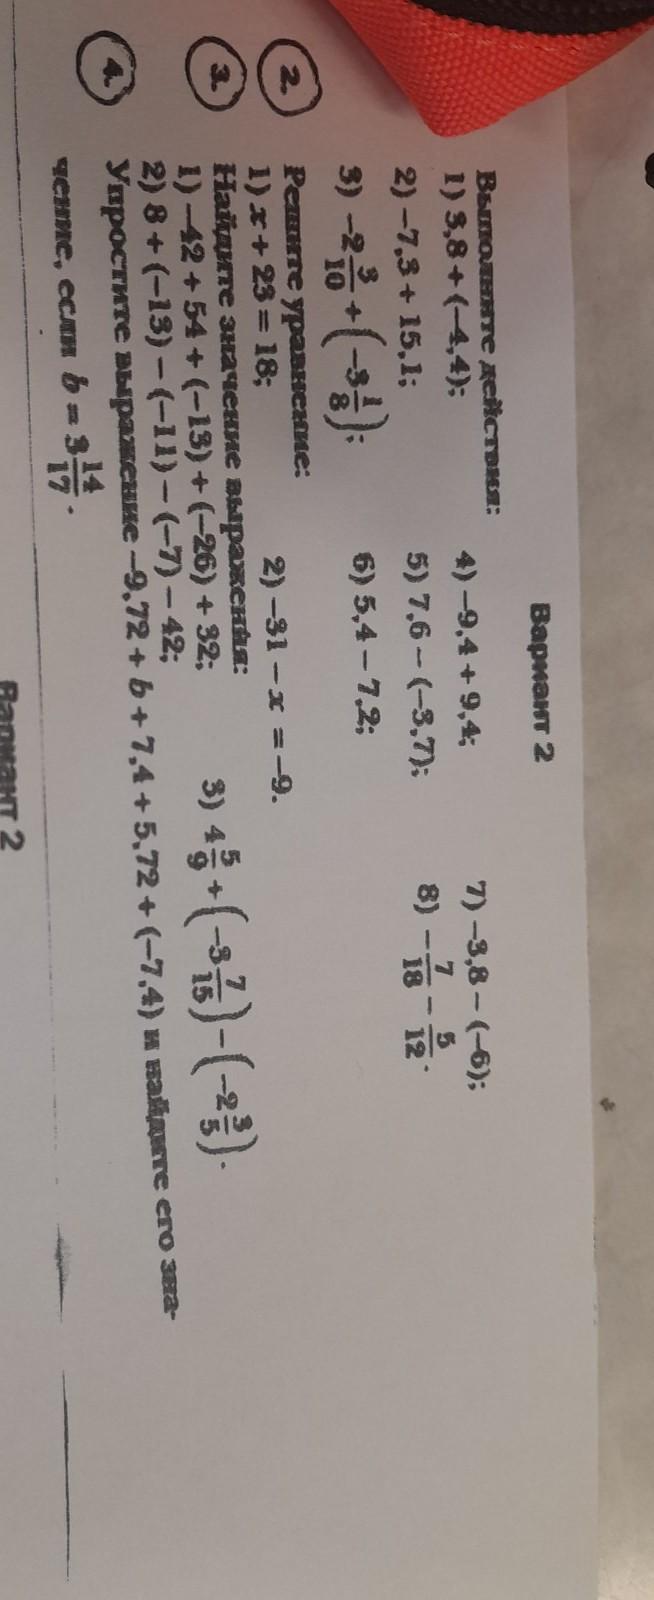 Вариант 2
Выполните действия:
1) 3,8 + (−4,4); 4) −9,4 + 9,4; 7) −3,8 − (−6);
2) −7,3 + 15,1; 5) 7,6 − (−3,7); 8) −7/18 − 5/12.
3) −2 3/10 + (−3 1/8); 6) 5,4 − 7,2;
2. Решите уравнение:
1) x + 23 = 18; 2) −31 − x = −9.
3. Найдите значение выражения:
1) −42 + 54 + (−13) + (−26) + 32; 3) 4 5/9 + (−3 7/15) − (−2 3/5).
2) 8 + (−13) − (−11) − (−7) − 42;
4. Упростите выражение −9,72 + b + 7,4 + 5,72 + (−7,4) и найдите его зна-
чение, если b = 3 14/17.
Вариант 2